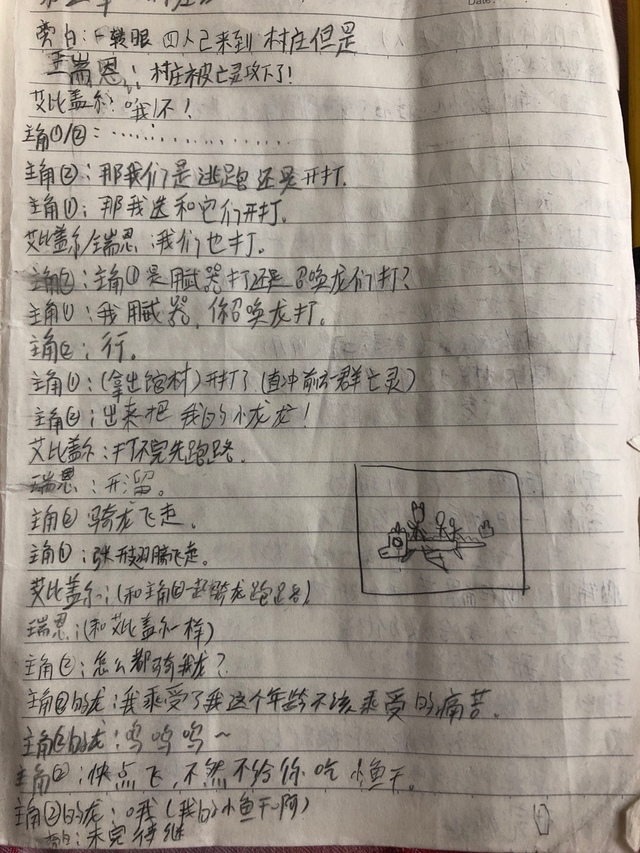 旁白：一转眼 四人已来到 村庄但是
瑞恩：村庄被亡灵攻下了！
艾比盖尔：哦！不！
主角①/②：..................
主角②：那我们是逃跑还是开打.
主角①：那我选和它们开打。
艾比盖尔/瑞恩：我们也打。
主角②：主角①是用武器打还是召唤龙们打？
主角①：我用武器，你召唤龙打。
主角②：行。
主角①：(拿出棺材)开打了(直冲前方群亡灵)
主角②：出来把 我的小龙龙！
艾比盖尔：打不完先跑路.
瑞恩：开溜。
主角②骑龙飞走.
主角①：张开翅膀飞走。
艾比盖尔：(和主角②一起骑龙跑路)
瑞恩：(和艾比盖尔一样)
主角②：怎么都骑我龙？
主角②的龙：我乘受了我这个年龄不该乘受的痛苦.
主角②的龙：呜呜呜~
主角②：快点飞，不然不给你吃 小鱼干。
主角②的龙：哦(我的小鱼干啊)
旁白：未完待继